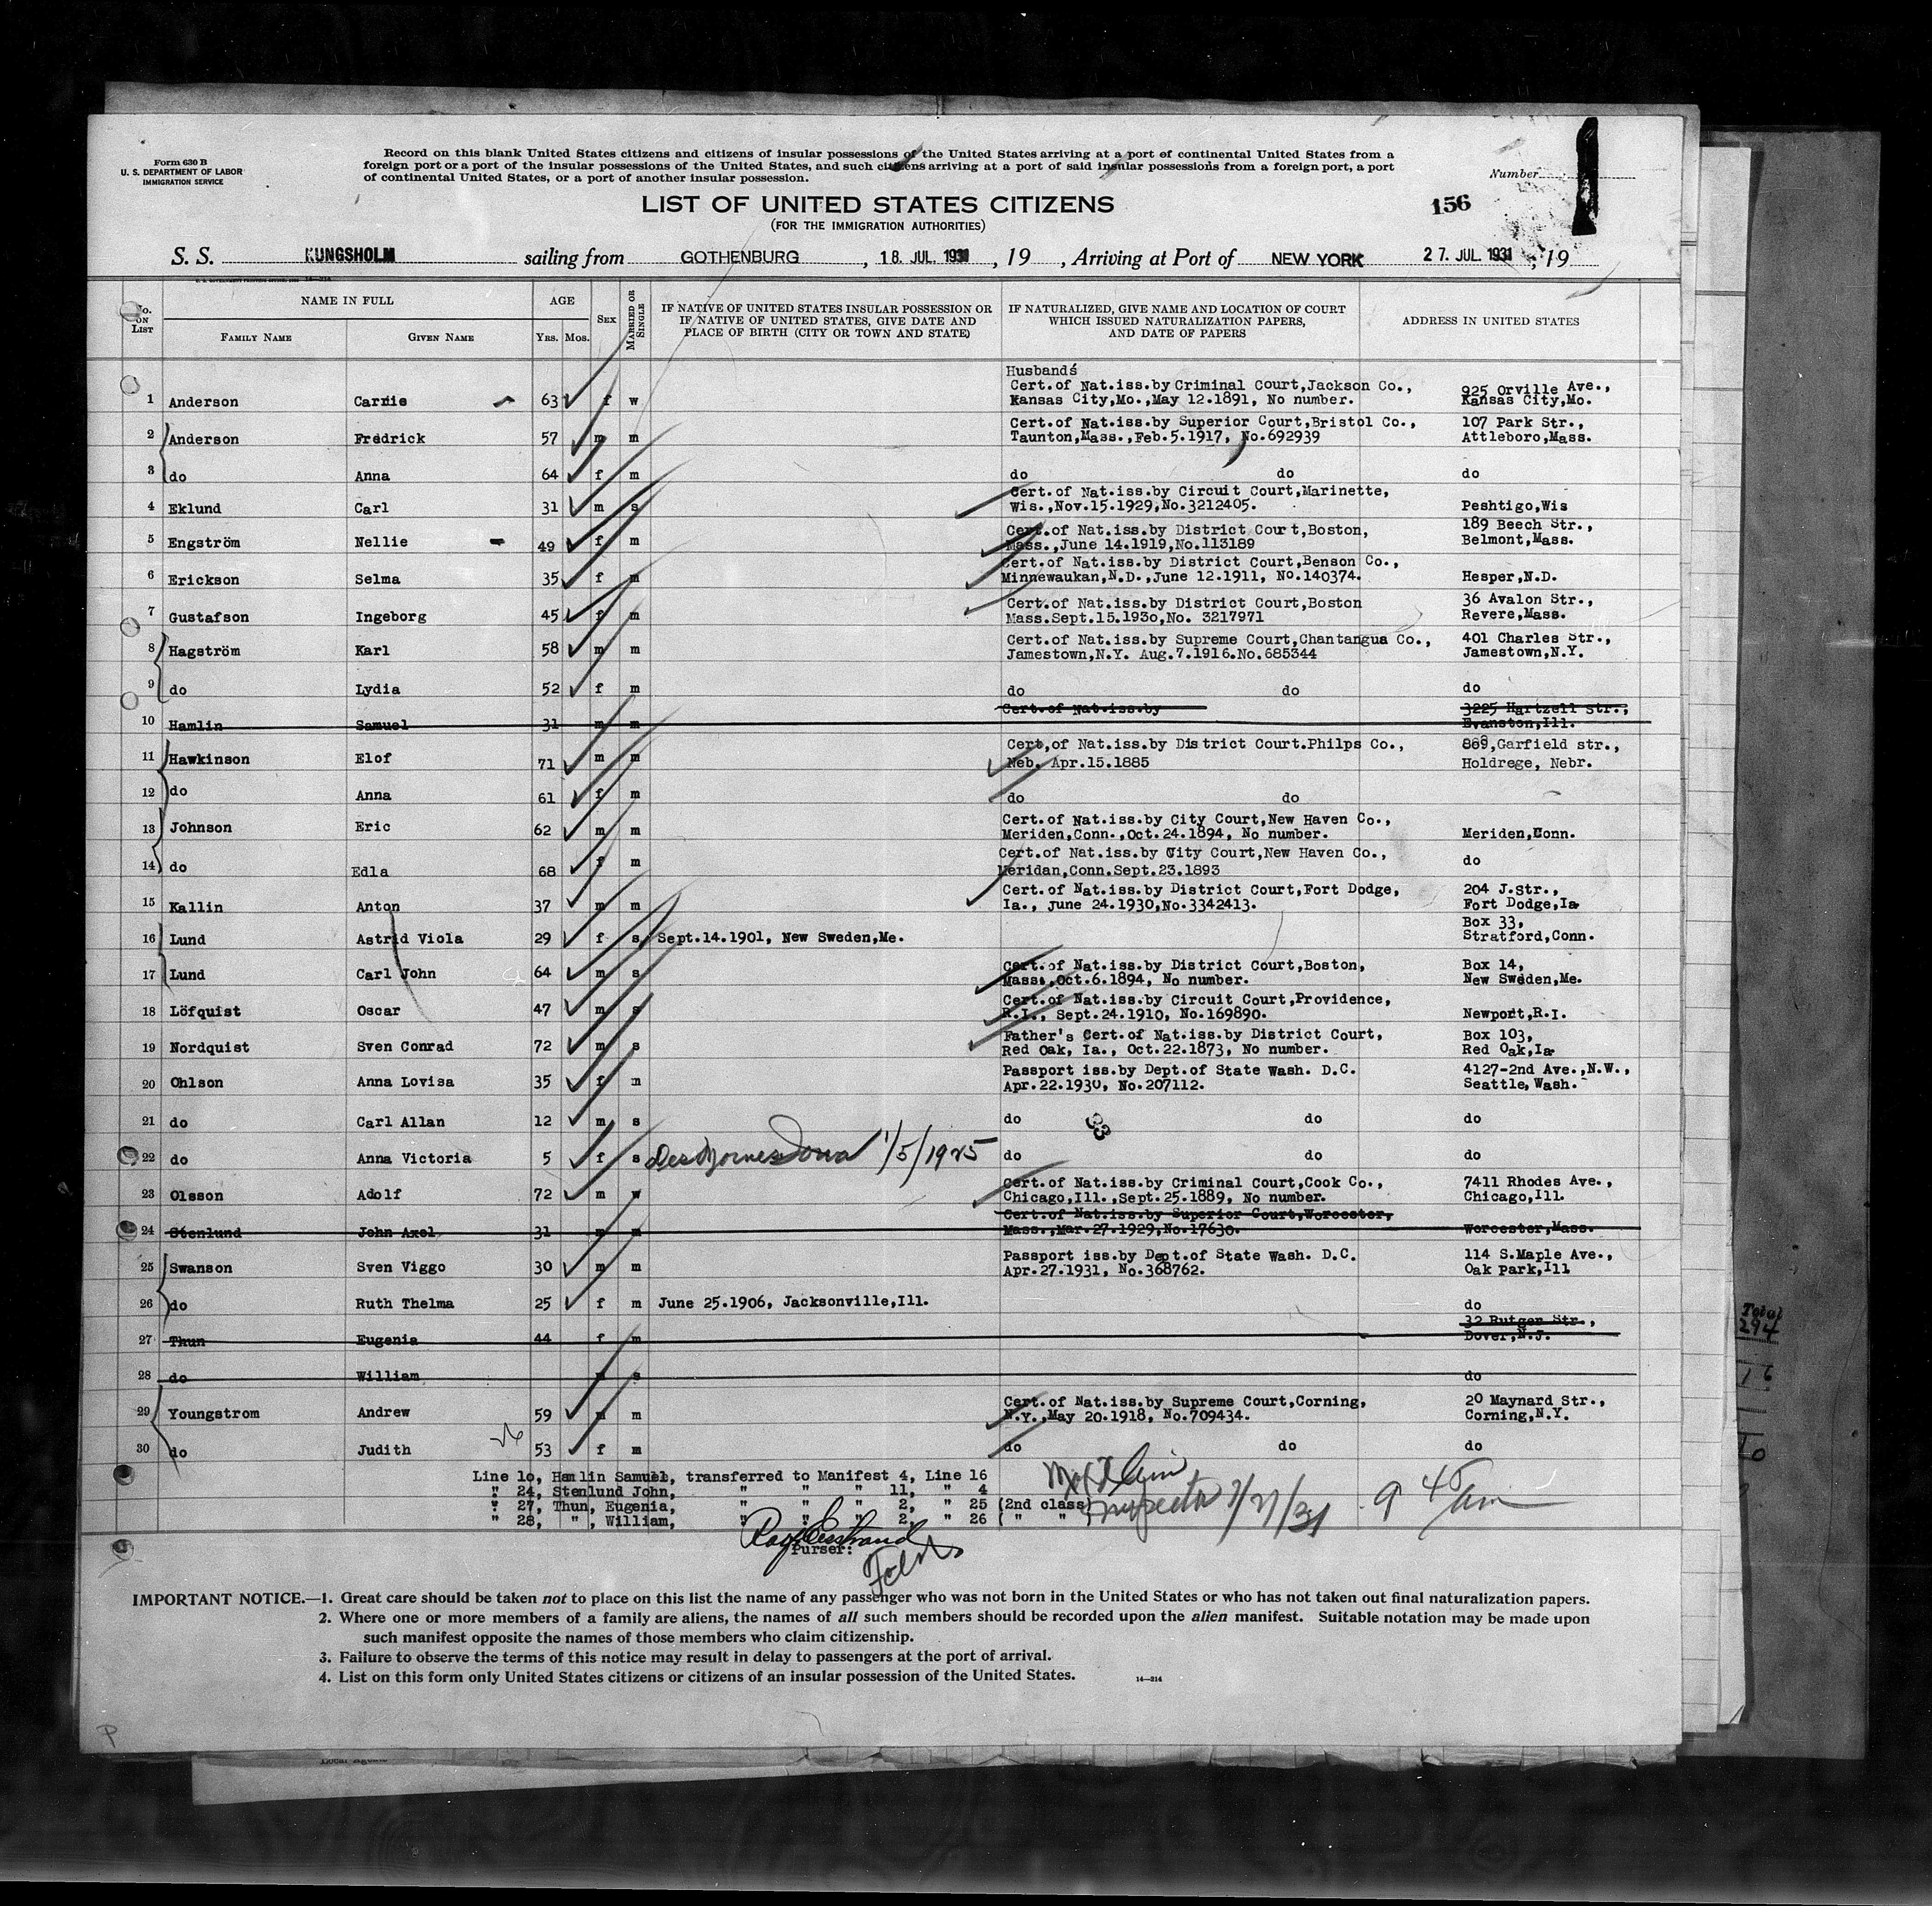 Form 630 B
U. S. DEPARTMENT OF LABOR
IMMIGRATION SERVICE
Record on this blank United States citizens and citizens of insular possessions of the United States arriving at a port of continental United States from a
foreign port or a port of the insular possessions of the United States, and such citizens arriving at a port of said insular possessions from a foreign port, a port
of continental United States, or a port of another insular possession.
Number
156
LIST OF UNITED STATES CITIZENS
(FOR THE IMMIGRATION AUTHORITIES)
S. S. KUNGSHOLM sailing from GOTHENBURG, 18. JUL. 1931, 19 , Arriving at Port of NEW YORK 27. JUL. 1931, 19
No. ON LIST NAME IN FULL AGE SEX MARRIED OR SINGLE IF NATIVE OF UNITED STATES INSULAR POSSESSION OR IF NATIVE OF UNITED STATES, GIVE DATE AND PLACE OF BIRTH (CITY OR TOWN AND STATE) IF NATURALIZED, GIVE NAME AND LOCATION OF COURT WHICH ISSUED NATURALIZATION PAPERS, AND DATE OF PAPERS ADDRESS IN UNITED STATES
FAMILY NAME GIVEN NAME YRS. MOS.
Husbands
Cert.of Nat.iss.by Criminal Court,Jackson Co., 925 Orville Ave.,
1 Anderson Carrie 63 f w Kansas City,Mo.,May 12.1891, No number. Kansas City,Mo.
Cert.of Nat.iss.by Superior Court,Bristol Co., 107 Park Str.,
2 Anderson Fredrick 57 m m Taunton,Mass.,Feb.5.1917, No.692939 Attleboro,Mass.
3 do Anna 64 f m do do do
Cert.of Nat.iss.by Circuit Court,Marinette,
4 Eklund Carl 31 m s Wis.,Nov.15.1929,No.3212405. Peshtigo,Wis
Cert.of Nat.iss.by District Court,Boston, 189 Beech Str.,
5 Engström Nellie 49 f m Mass.,June 14.1919,No.113189 Belmont,Mass.
Cert.of Nat.iss.by District Court,Benson Co.,
6 Erickson Selma 35 f m Minnewaukan,N.D.,June 12.1911, No.140374. Hesper,N.D.
Cert.of Nat.iss.by District Court,Boston 36 Avalon Str.,
7 Gustafson Ingeborg 45 f m Mass.Sept.15.1930,No. 3217971 Revere,Mass.
Cert.of Nat.iss.by Supreme Court,Chantangua Co., 401 Charles Str.,
8 Hagström Karl 58 m m Jamestown,N.Y. Aug.7.1916.No.685344 Jamestown,N.Y.
9 do Lydia 52 f m do do do
Cert.of Nat.iss.by 3225 Hartzell Str.,
10 Hamlin Samuel 31 m m Evanston,Ill.
Cert,of Nat.iss.by District Court.Philps Co., 869,Garfield str.,
11 Hawkinson Elof 71 m m Neb. Apr.15.1885 Holdrege, Nebr.
12 do Anna 61 f m do do
Cert.of Nat.iss.by City Court,New Haven Co.,
13 Johnson Eric 62 m m Meriden,Conn.,Oct.24.1894, No number. Meriden,Conn.
Cert.of Nat.iss.by City Court,New Haven Co.,
14 do Edla 68 f m Meridan,Conn.Sept.23.1893 do
Cert.of Nat.iss.by District Court,Fort Dodge, 204 J.Str.,
15 Kallin Anton 37 m m Ia., June 24.1930,No.3342413. Fort Dodge,Ia
Box 33,
16 Lund Astrid Viola 29 f s Sept.14.1901, New Sweden,Me. Stratford,Conn.
Cert.of Nat.iss.by District Court,Boston, Box 14,
17 Lund Carl John 64 m s Mass.,Oct.6.1894, No number. New Sweden,Me.
Cert.of Nat.iss.by Circuit Court,Providence,
18 Löfquist Oscar 47 m s R.I., Sept.24.1910, No.169890. Newport,R.I.
Father's Cert.of Nat.iss.by District Court, Box 103,
19 Nordquist Sven Conrad 72 m s Red Oak, Ia., Oct.22.1873, No number. Red Oak,Ia
Passport iss.by Dept.of State Wash. D.C. 4127-2nd Ave.,N.W.,
20 Ohlson Anna Lovisa 35 f m Apr.22.1930, No.207112. Seattle,Wash.
21 do Carl Allan 12 m s do 33 do do
22 do Anna Victoria 5 f s Des Moines Iowa 1/5/1925 do do do
Cert.of Nat.iss.by Criminal Court,Cook Co., 7411 Rhodes Ave.,
23 Olsson Adolf 72 m w Chicago,Ill.,Sept.25.1889, No number. Chicago,Ill.
Cert.of Nat.iss.by Superior Court,Worcester,
24 Stenlund John Axel 31 m m Mass.,Mar.27.1929,No.17630. Worcester,Mass.
Passport iss.by Dept.of State Wash. D.C. 114 S.Maple Ave.,
25 Swanson Sven Viggo 30 m m Apr.27.1931, No.368762. Oak Park,Ill
26 do Ruth Thelma 25 f m June 25.1906, Jacksonville,Ill. do
32 Rutger Str.,
27 Thun Eugenia 44 f m Dover,N.J.
28 do William s do
Cert.of Nat.iss.by Supreme Court,Corning, 20 Maynard Str.,
29 Youngstrom Andrew 59 m m N.Y.,May 20.1918, No.709434. Corning,N.Y.
30 do Judith 53 f m do do do
Line 10, Hamlin Samuel, transferred to Manifest 4, Line 16
" 24, Stenlund John, " " " 11, " 4
" 27, Thun, Eugenia, " " " 2, " 25 (2nd class)
" 28, " , William, " " " 2, " 26 ( " " )
Inspector 7/27/31 9 45 am
Purser:
IMPORTANT NOTICE.—1. Great care should be taken not to place on this list the name of any passenger who was not born in the United States or who has not taken out final naturalization papers.
2. Where one or more members of a family are aliens, the names of all such members should be recorded upon the alien manifest. Suitable notation may be made upon
such manifest opposite the names of those members who claim citizenship.
3. Failure to observe the terms of this notice may result in delay to passengers at the port of arrival.
4. List on this form only United States citizens or citizens of an insular possession of the United States.
14—214
Total
294